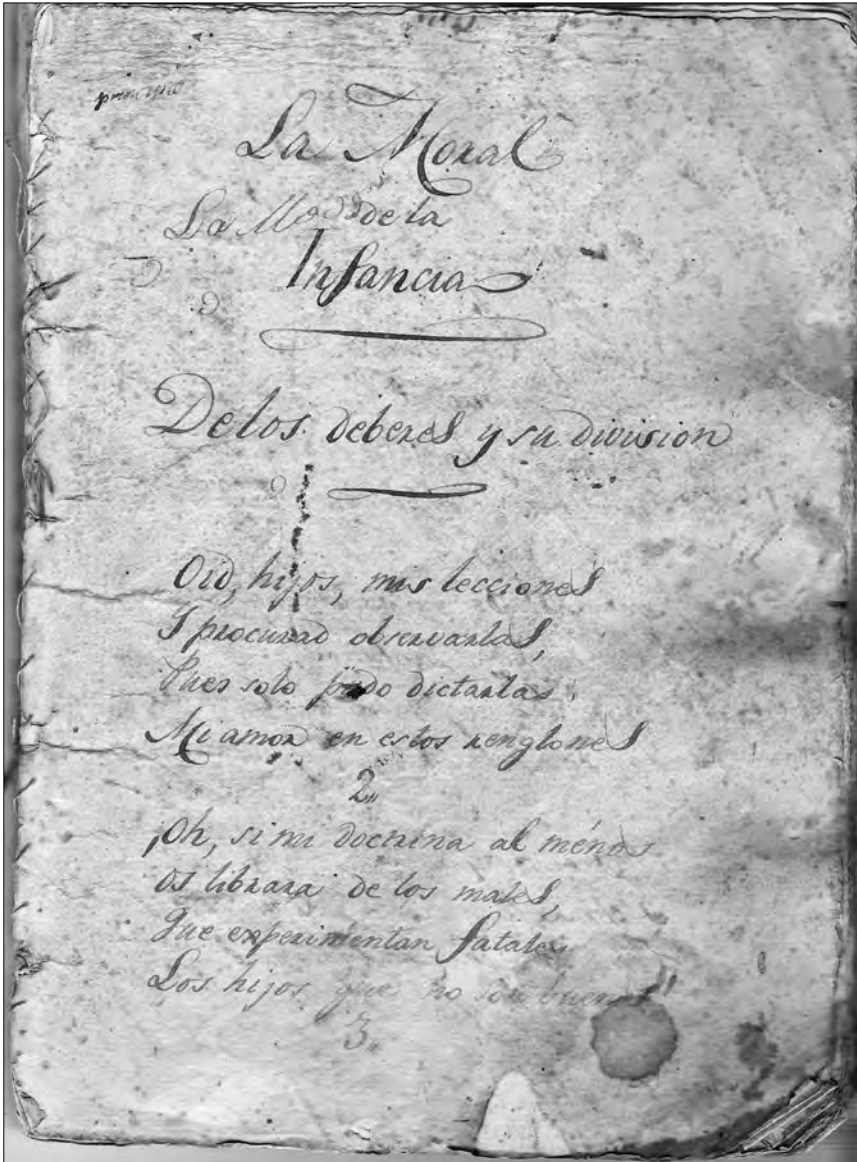 principio
La Moral
La Mo de la
Infancia
De los deberes y su division
Oid, hijos, mis lecciones
Y procurad observarlas,
Pues solo pudo dictarlas
Mi amor en estos renglones
2,,
¡Oh, si mi doctrina al ménos
os librara de los males,
que experimentan fatales
Los hijos que no son buenos!
3,,